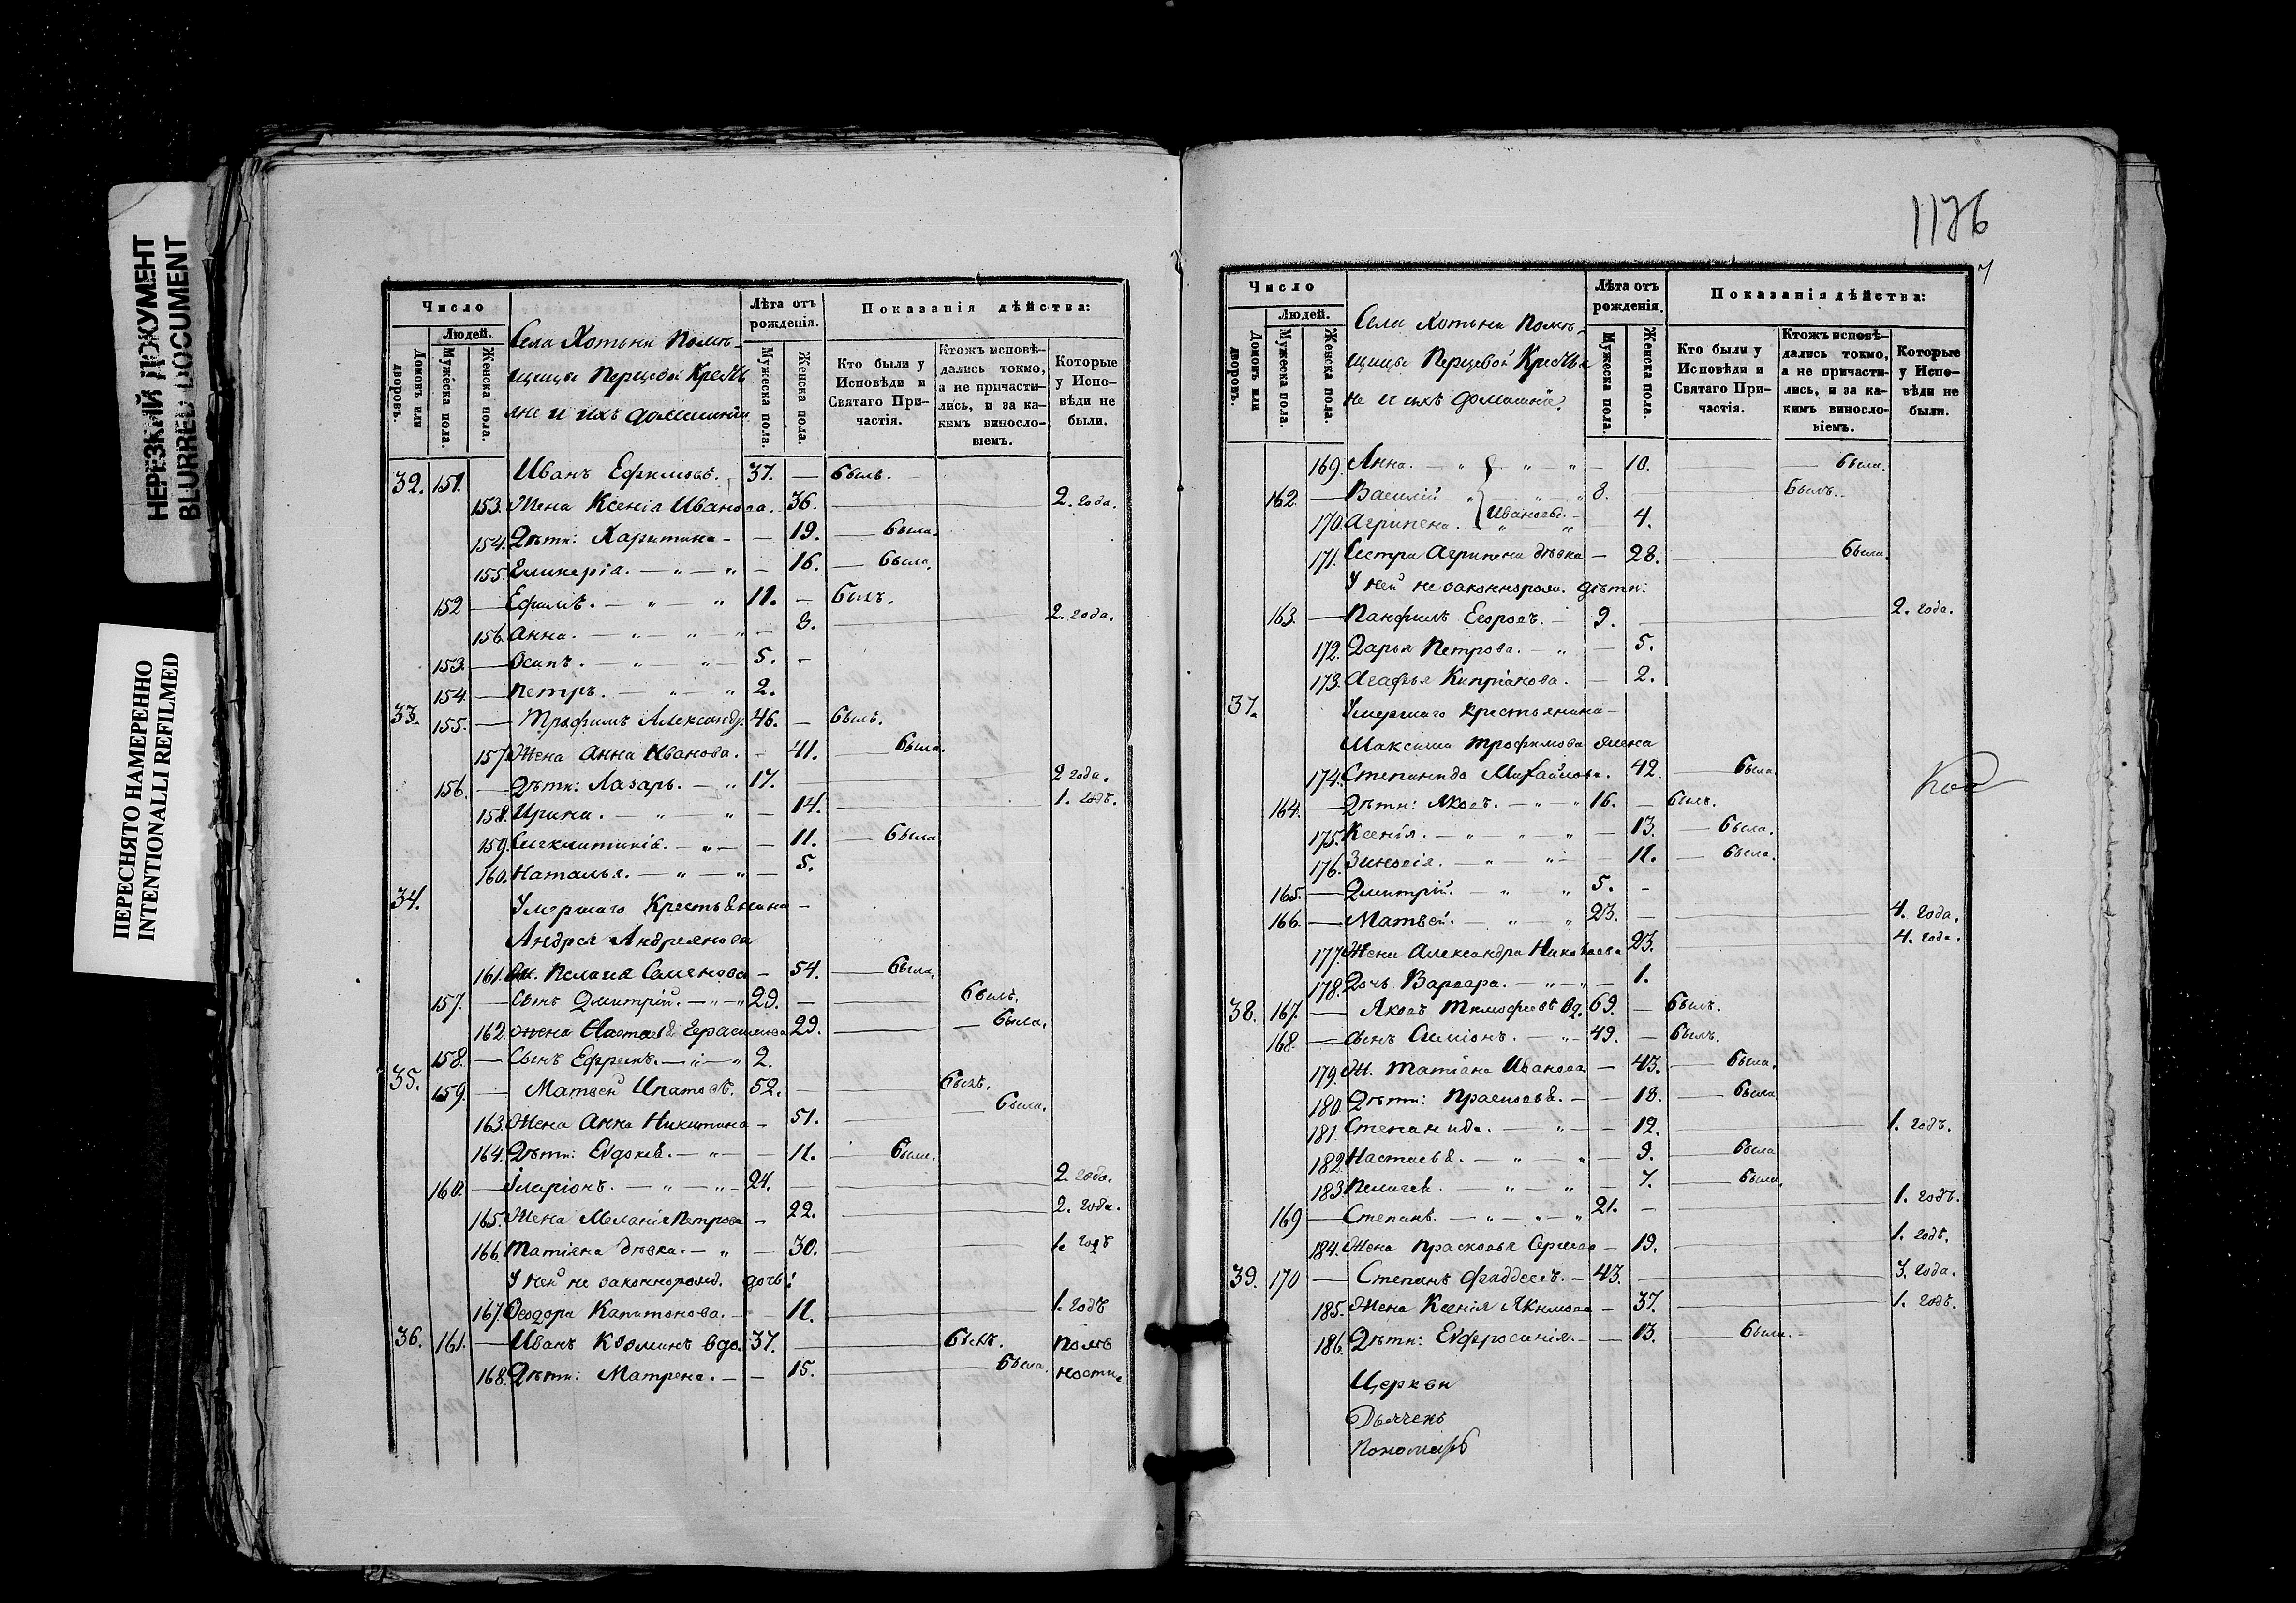 НЕРЕЗКИЙ ДОКУМЕНТ
BLURRED DOCUMENT
ПЕРЕСНЯТО НАМЕРЕННО
INTENTIONALLI REFILMED
Число
Людей.
Домовъ или дворовъ.
Мужеска пола.
Женска пола.
Села Хотыни Помѣ-
щицы Перцовой Кресть
яне и ихъ домашніи
Лѣта отъ рожденія.
Мужеска пола.
Женска пола.
Показанія дѣйства:
Кто были у Исповѣди и Святаго Причастія.
Ктожъ исповѣ-дались токмо, а не причасти-лись, и за ка-кимъ винословіемъ.
Которые у Испо-вѣди не были.
32. 151. Иванъ Ефимовъ. 37. — былъ.
153. Жена Ксенія Иванова. 36. 2. года.
154. Дѣти: Харитина — — 19. — была.
155. Гликерія. — " — " — 16. — была.
152 — Ефимъ. — " — " 11. — былъ.
156. Анна. — " — " — " — 8. 2. года.
153. — Осипъ. — " — " — 5. -
154. — Петръ. — " — " 2.
33. 155. — Трофимъ Александр. 46. — былъ.
157. Жена Анна Иванова. - 41. — была.
156. — Дѣти: Лазарь. — " 17. 2 года.
158. Ирина. — " — " — 14. 1. годъ.
159. — " — — 11. — была.
160. Наталья. — " — " — 5.
34. Умершаго Крестьянина —
Андрея Андреянова
161. Ж. Пелагія Семенова — 54. — была.
157. — Сынъ Дмитрій. — " — " 29. — былъ.
162. жена Настасья Герасимова 29. — была.
158. — Сынъ Ефремъ. — " — " 2.
35. 159. — Матвей Ипатовъ. 52. — былъ.
163. Жена Анна Никитина — 51. — была.
164. Дѣти: Евдокія. — " — — 11. — была.
160. — Иларіонъ. — " — " — 24. — 2. года.
165. Жена Меланія Петрова — 22. 2. года.
166. Татіяна дѣвка. — " — 30. 1. годъ
У ней не законнорожд. дочь:
167. Ѳеодора Капитонова. — 11. 1. годъ
36. 161. — Иванъ Козминъ вдо. 37. — былъ. по лѣ
168. Дѣти: Матрена. — — 15. — была. ности.
1176
7
Число
Людей.
Домовъ или дворовъ.
Мужеска пола.
Женска пола.
Села Хотыни Помѣ-
щицы Перцовой Крестья
не и ихъ домашніи.
Лѣта отъ рожденія.
Мужеска пола.
Женска пола.
Показанія дѣйства:
Кто были у Исповѣди и Святаго При-частія.
Ктожъ исповѣ-дались токмо, а не причасти-лись, и за ка-кимъ винослo-віемъ.
Которые у Испо-вѣди не были.
169. Анна. — " — " " — 10. — была.
162. — Василій — " — " — " 8. — былъ.
170. Агрипена. — Ивановы. — 4.
171. Сестра Агрипена дѣвка — 28. — была.
У ней не законнорожд. дѣти:
163. — Панфилъ Егоровъ. — 9. — 2. года.
172. Дарья Петрова. — " — 5.
173. Агафья Кипріанова. — 2.
37. Умершаго крестьянина —
Максима Трофимова жена
174. Степанида Михайлова. 42. — была.
164. — Дѣти: Яковъ. — " — " 16. — былъ.
175. Ксенія. — " — " — " — 13. — была.
176. Зиновія. — " — " — — 11. — была.
165. — Дмитрій. — " — " 5. -
166. — Матвей. — " — " 23. — 4. года.
177. Жена Александра Николаева 23. 4. года.
178. Дочь Варвара. — " — " — 1.
38. 167. — Яковъ Тимофеевъ вд. 69. — былъ.
168. — сынъ Симіонъ. — " — 49. — былъ.
179. Ж. Татіана Иванова — 43. — была.
180. Дѣти: Прасковья. — — 18. — была
181. Степанида. — " — — 12. 1. годъ.
182. Настасья. — " — " — 9. — была
183. Пелагея. " — " — 7. — была.
169 — Степанъ. — " — " — " 21. — 1. годъ.
184. Жена Прасковья Сергеева — 19. 1. годъ.
39. 170 — Степанъ Фаддеевъ. — 43. 3. года.
185. Жена Ксенія Якимова — 37. 1. годъ.
186. Дѣти: Евфросинія. — — 13. — была. -
Церкви
Дьячекъ
Пономарь